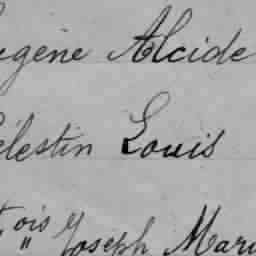 Eugène Alcide
Célestin Louis
Fçois Joseph Mari